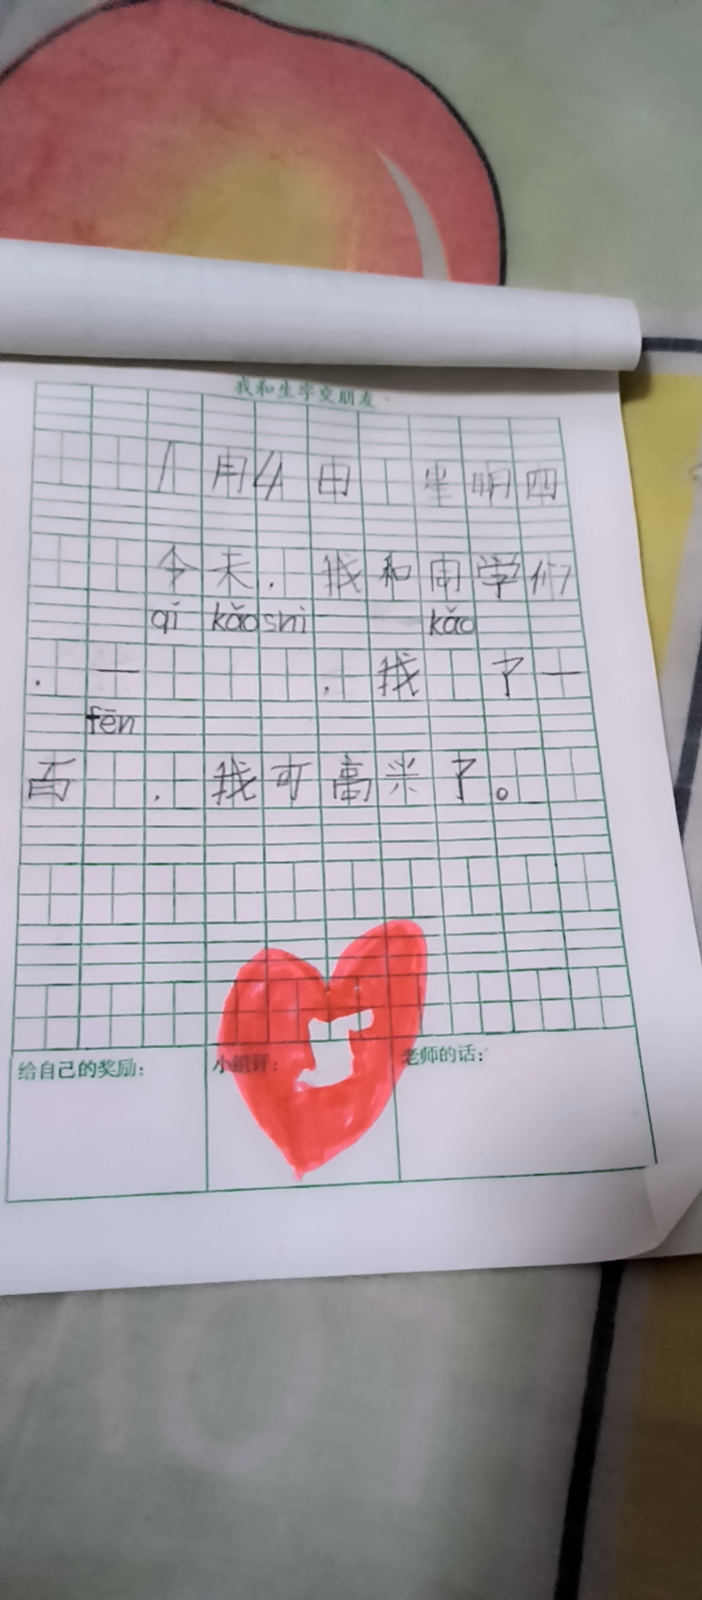 我和生字交朋友
1 月 4 日 星 明 四
今天，我和同学们
qǐ kǎoshì kǎo
，一 ，我 了一
fēn
百 ，我可高兴了。
给自己的奖励： 小组评： 老师的话：